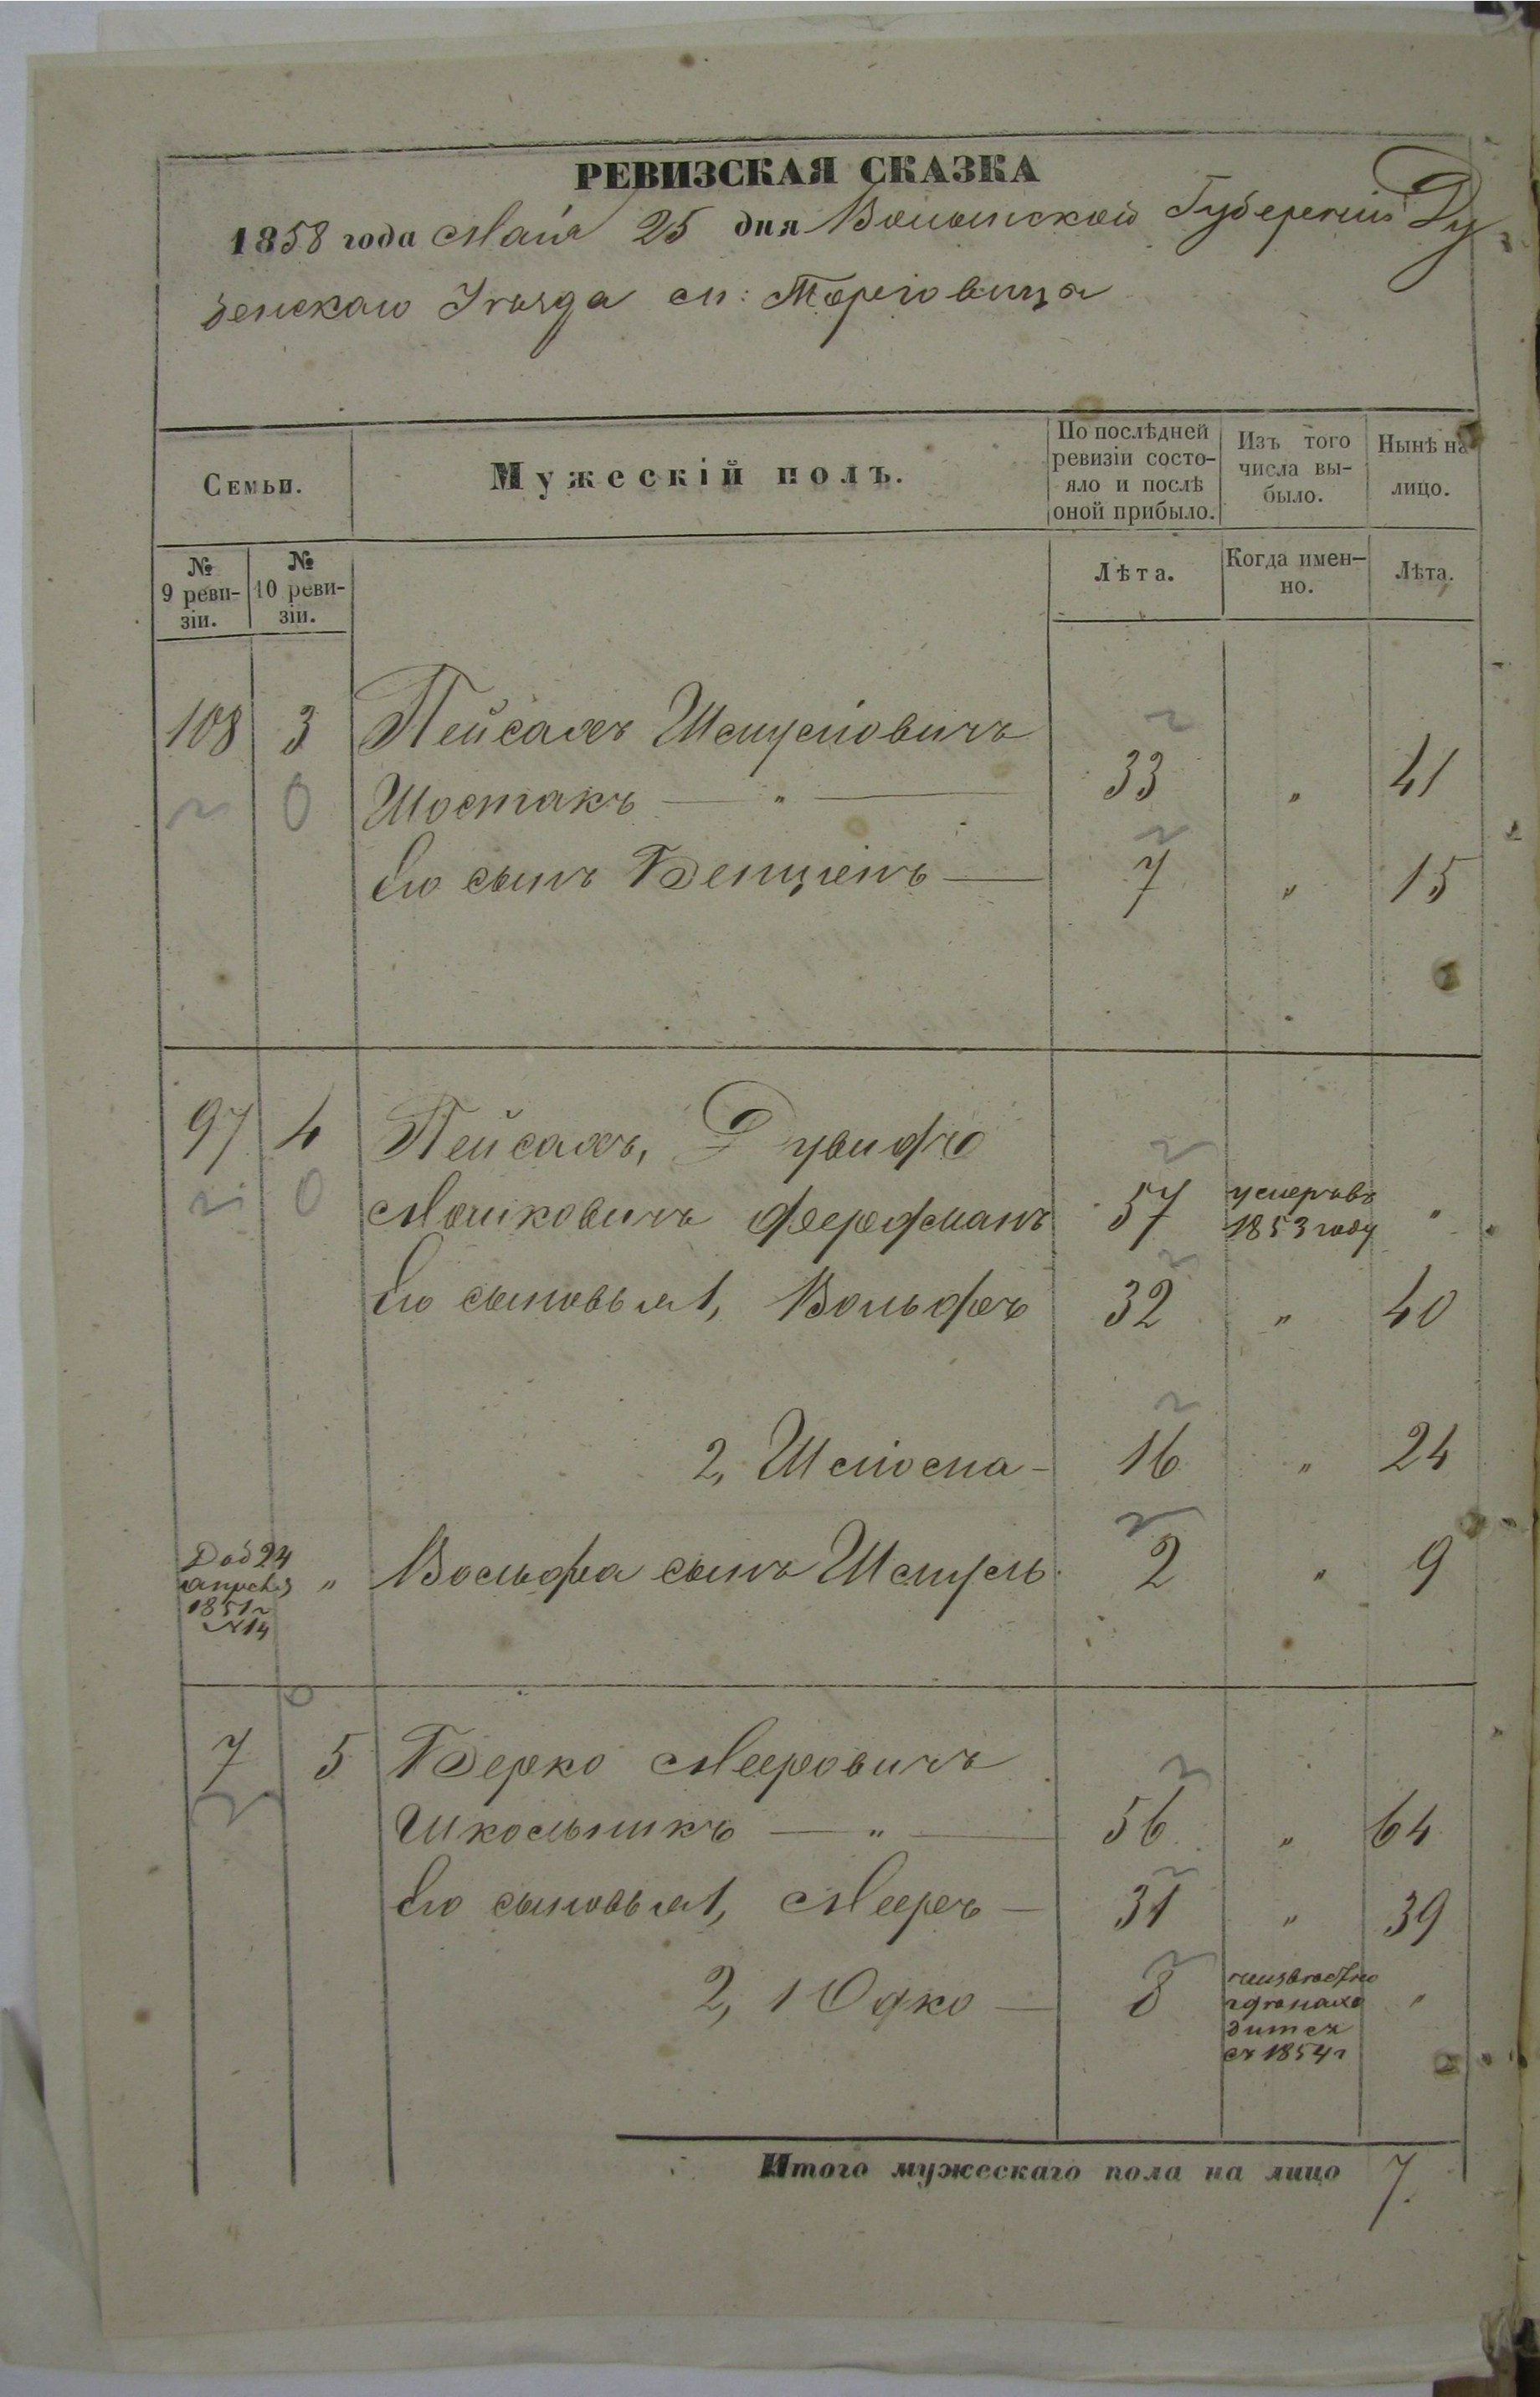 РЕВИЗСКАЯ СКАЗКА
1858 года Маія 25 дня Волынской Губерніи Ду
бенскаго Уѣзда м: Торговица
Семьи.
Мужескій полъ.
По послѣдней ревизіи состо-яло и послѣ оной прибыло.
Изъ того числа вы-было.
Нынѣ на лицо.
№ 9 реви-зіи.
№ 10 реви-зіи.
Лѣта.
Когда имен-но.
Лѣта.
108 3 Пейсахъ Шмулёвичъ
Шостакъ — " — 33 " 41
Его сынъ Бенціенъ — 7 " 15
97 4 Пейсахъ, Дувидъ
Мошковичъ Феерфманъ 57 умеръ въ 1853 году "
Его сыновья 1, Вольфъ 32 " 40
2, Шліома - 16 " 24
Доб 24 апреля 1851 г №14 " Вольфа сынъ Шмуль 2 " 9
7 5 Берко Мееровичъ
Школьникъ — " — 56 " 64
Его сыновья 1, Мееръ — 31 " 39
2, Юдко — 8 неизвестно где находится съ 1854 г "
Итого мужескаго пола на лицо 7.